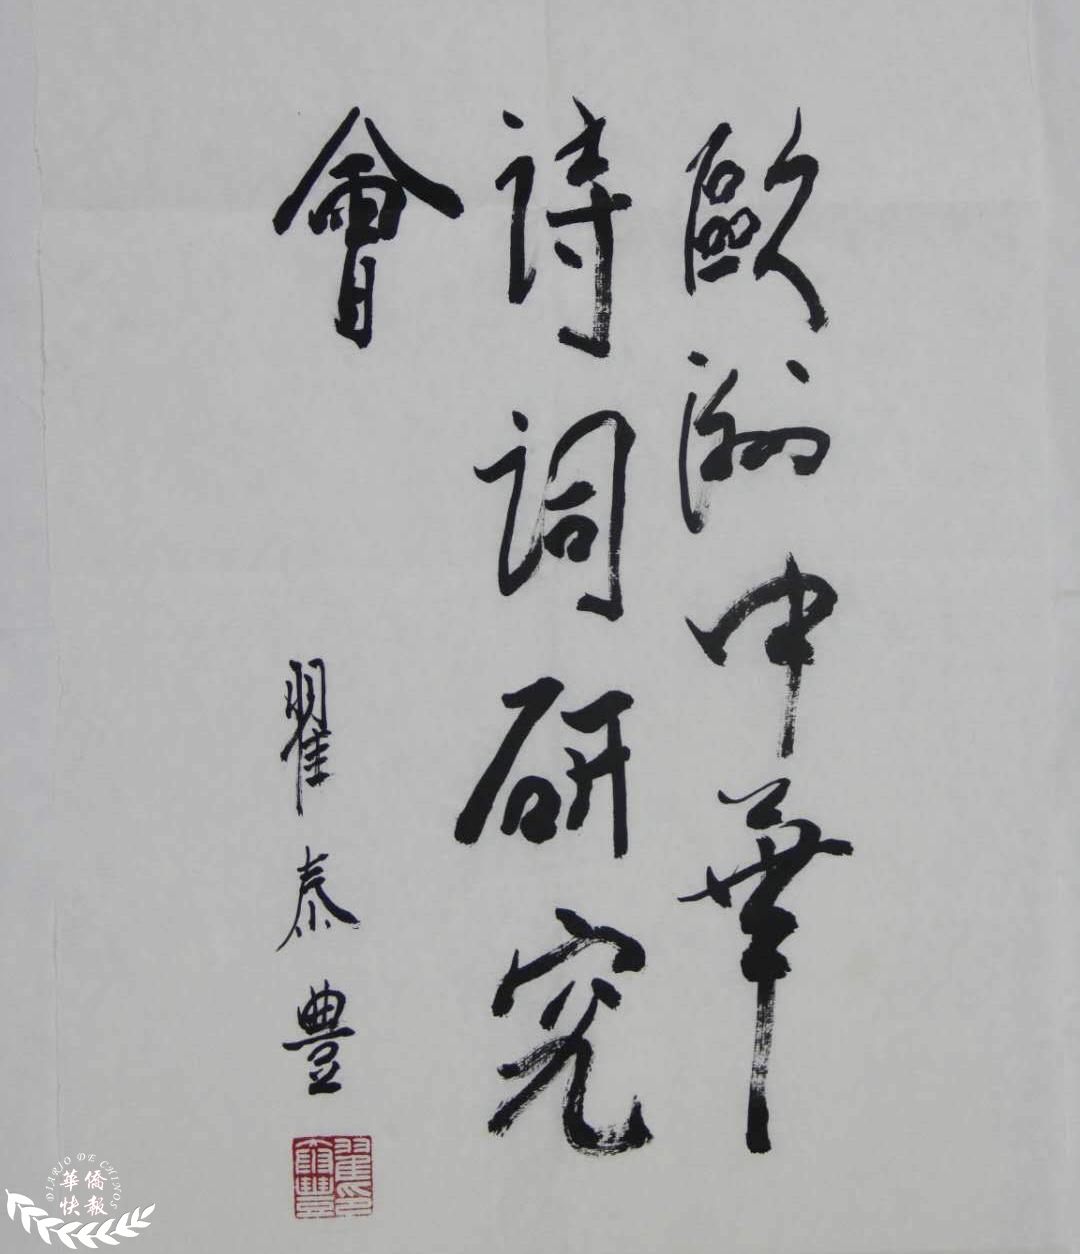 歐洲中華
詩詞研究
會
翟泰豐
翟泰豐印
DIARIO DE CHINOS
華僑
快報